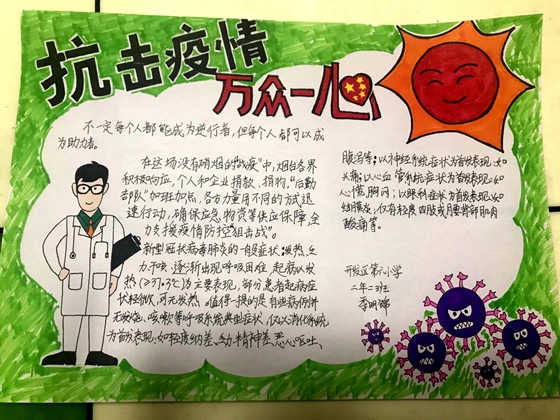 抗击疫情
万众一心
不一定每个人都能成为逆行者,但每个人都可以成
为助力者。
在这场没有硝烟的"战疫"中,烟台各界
积极响应,个人和企业捐款、捐物,"后勤
部队"加班加出,各方力量用不同的方式迅
速行动,确保应急物资等供应保障,全
力支援疫情防控"阻击战"。
新型冠状病毒肺炎的一般症状:发热、乏
力、干咳、逐渐出现呼吸困难,起病以发
热(≥37.3℃)为主要表现,部分患者起病症
状轻微,可无发热。值得一提的是有些病例并
无发烧、咳嗽等呼吸系统典型症状,仅以消化系统
为首发表现:如轻度纳差、乏力、精神差、恶心呕吐
腹泻等;以神经系统症状为首发表现:如
头痛;以心血管系统症状为首发表现:如
心慌、胸闷;以眼科症状为首发表现:如
结膜炎;仅有轻度四肢或腰背部肌肉
酸痛等。
开发区第六小学
二年二班
李明